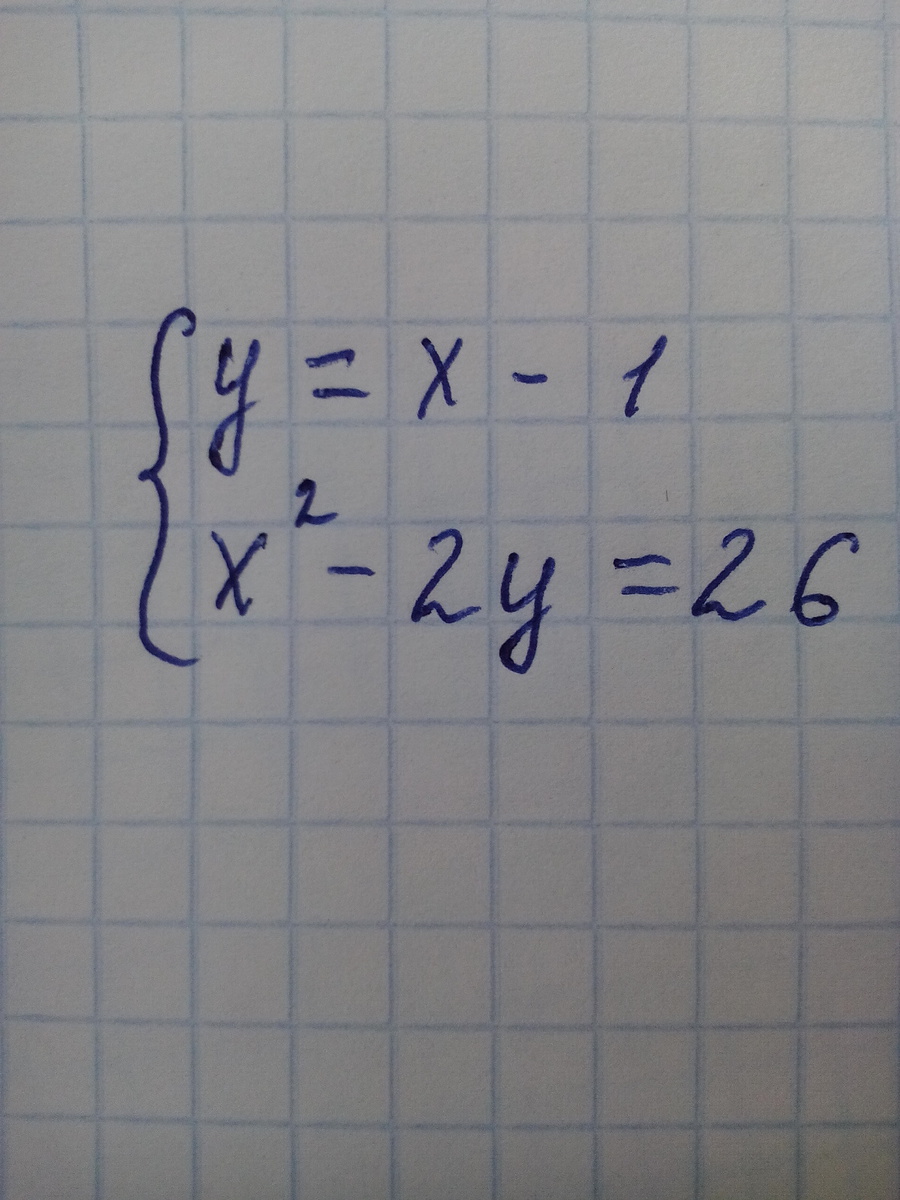 y = x - 1
x² - 2y = 26